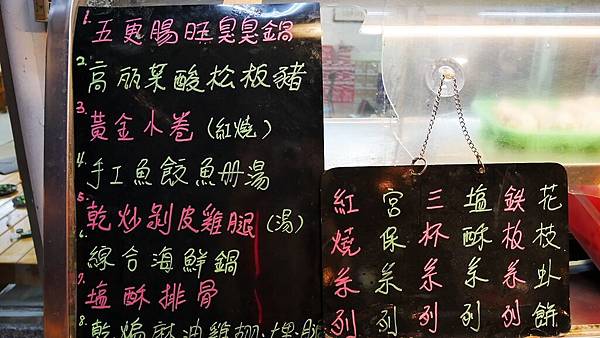 1. 五更腸旺臭臭鍋
2. 高丽菜酸松板豬
3. 黃金小卷(紅燒)
4. 手工魚餃魚冊湯
5. 乾炒剝皮雞腿(湯)
6. 綜合海鮮鍋
7. 塩酥排骨
8. 乾煸麻油雞
紅燒系列
宮保系列
三杯系列
塩酥系列
鉄板系列
花枝虾餅